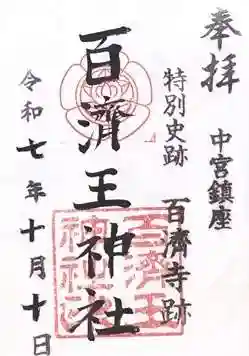 奉拝
中宮鎮座
特別史跡 百済寺跡
百濟王神社
令和七年十月十日